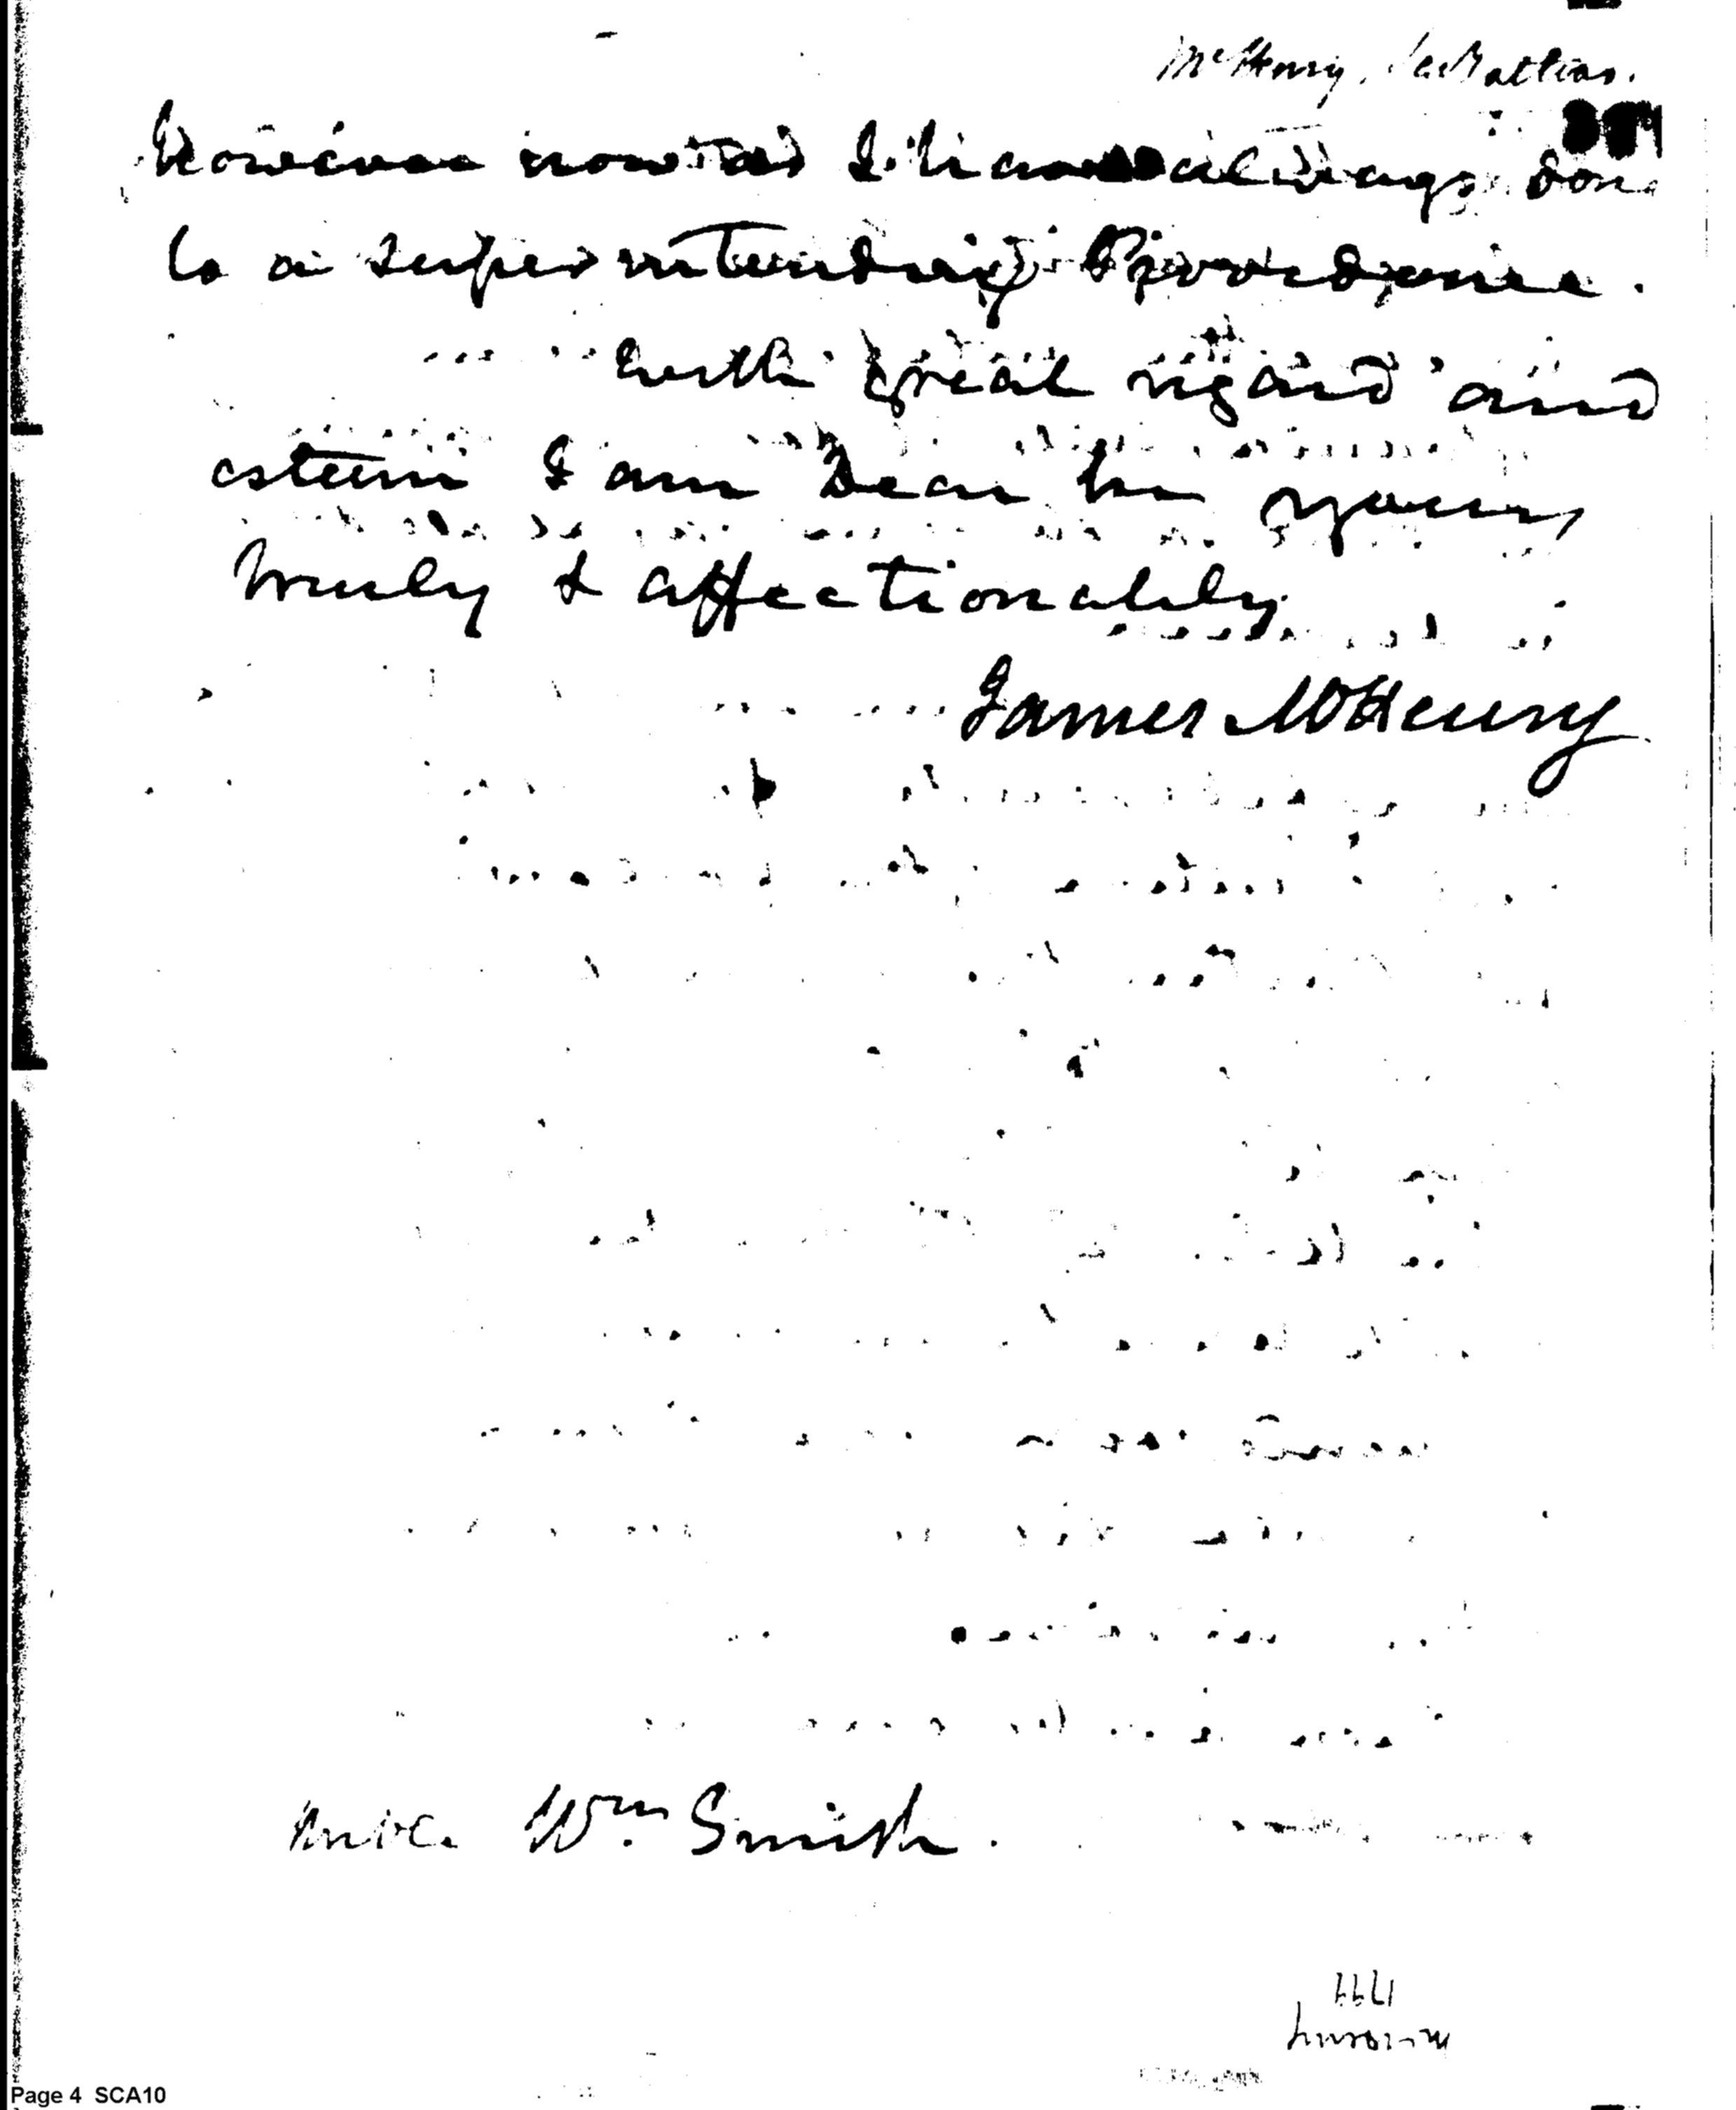 McHenry,
However now as I have always done
to a superintending Providence.
with great regard and
esteem I am Dear Sir yours
truly & affectionately
James McHenry
Wm Smith.
1777
Page 4 SCA10